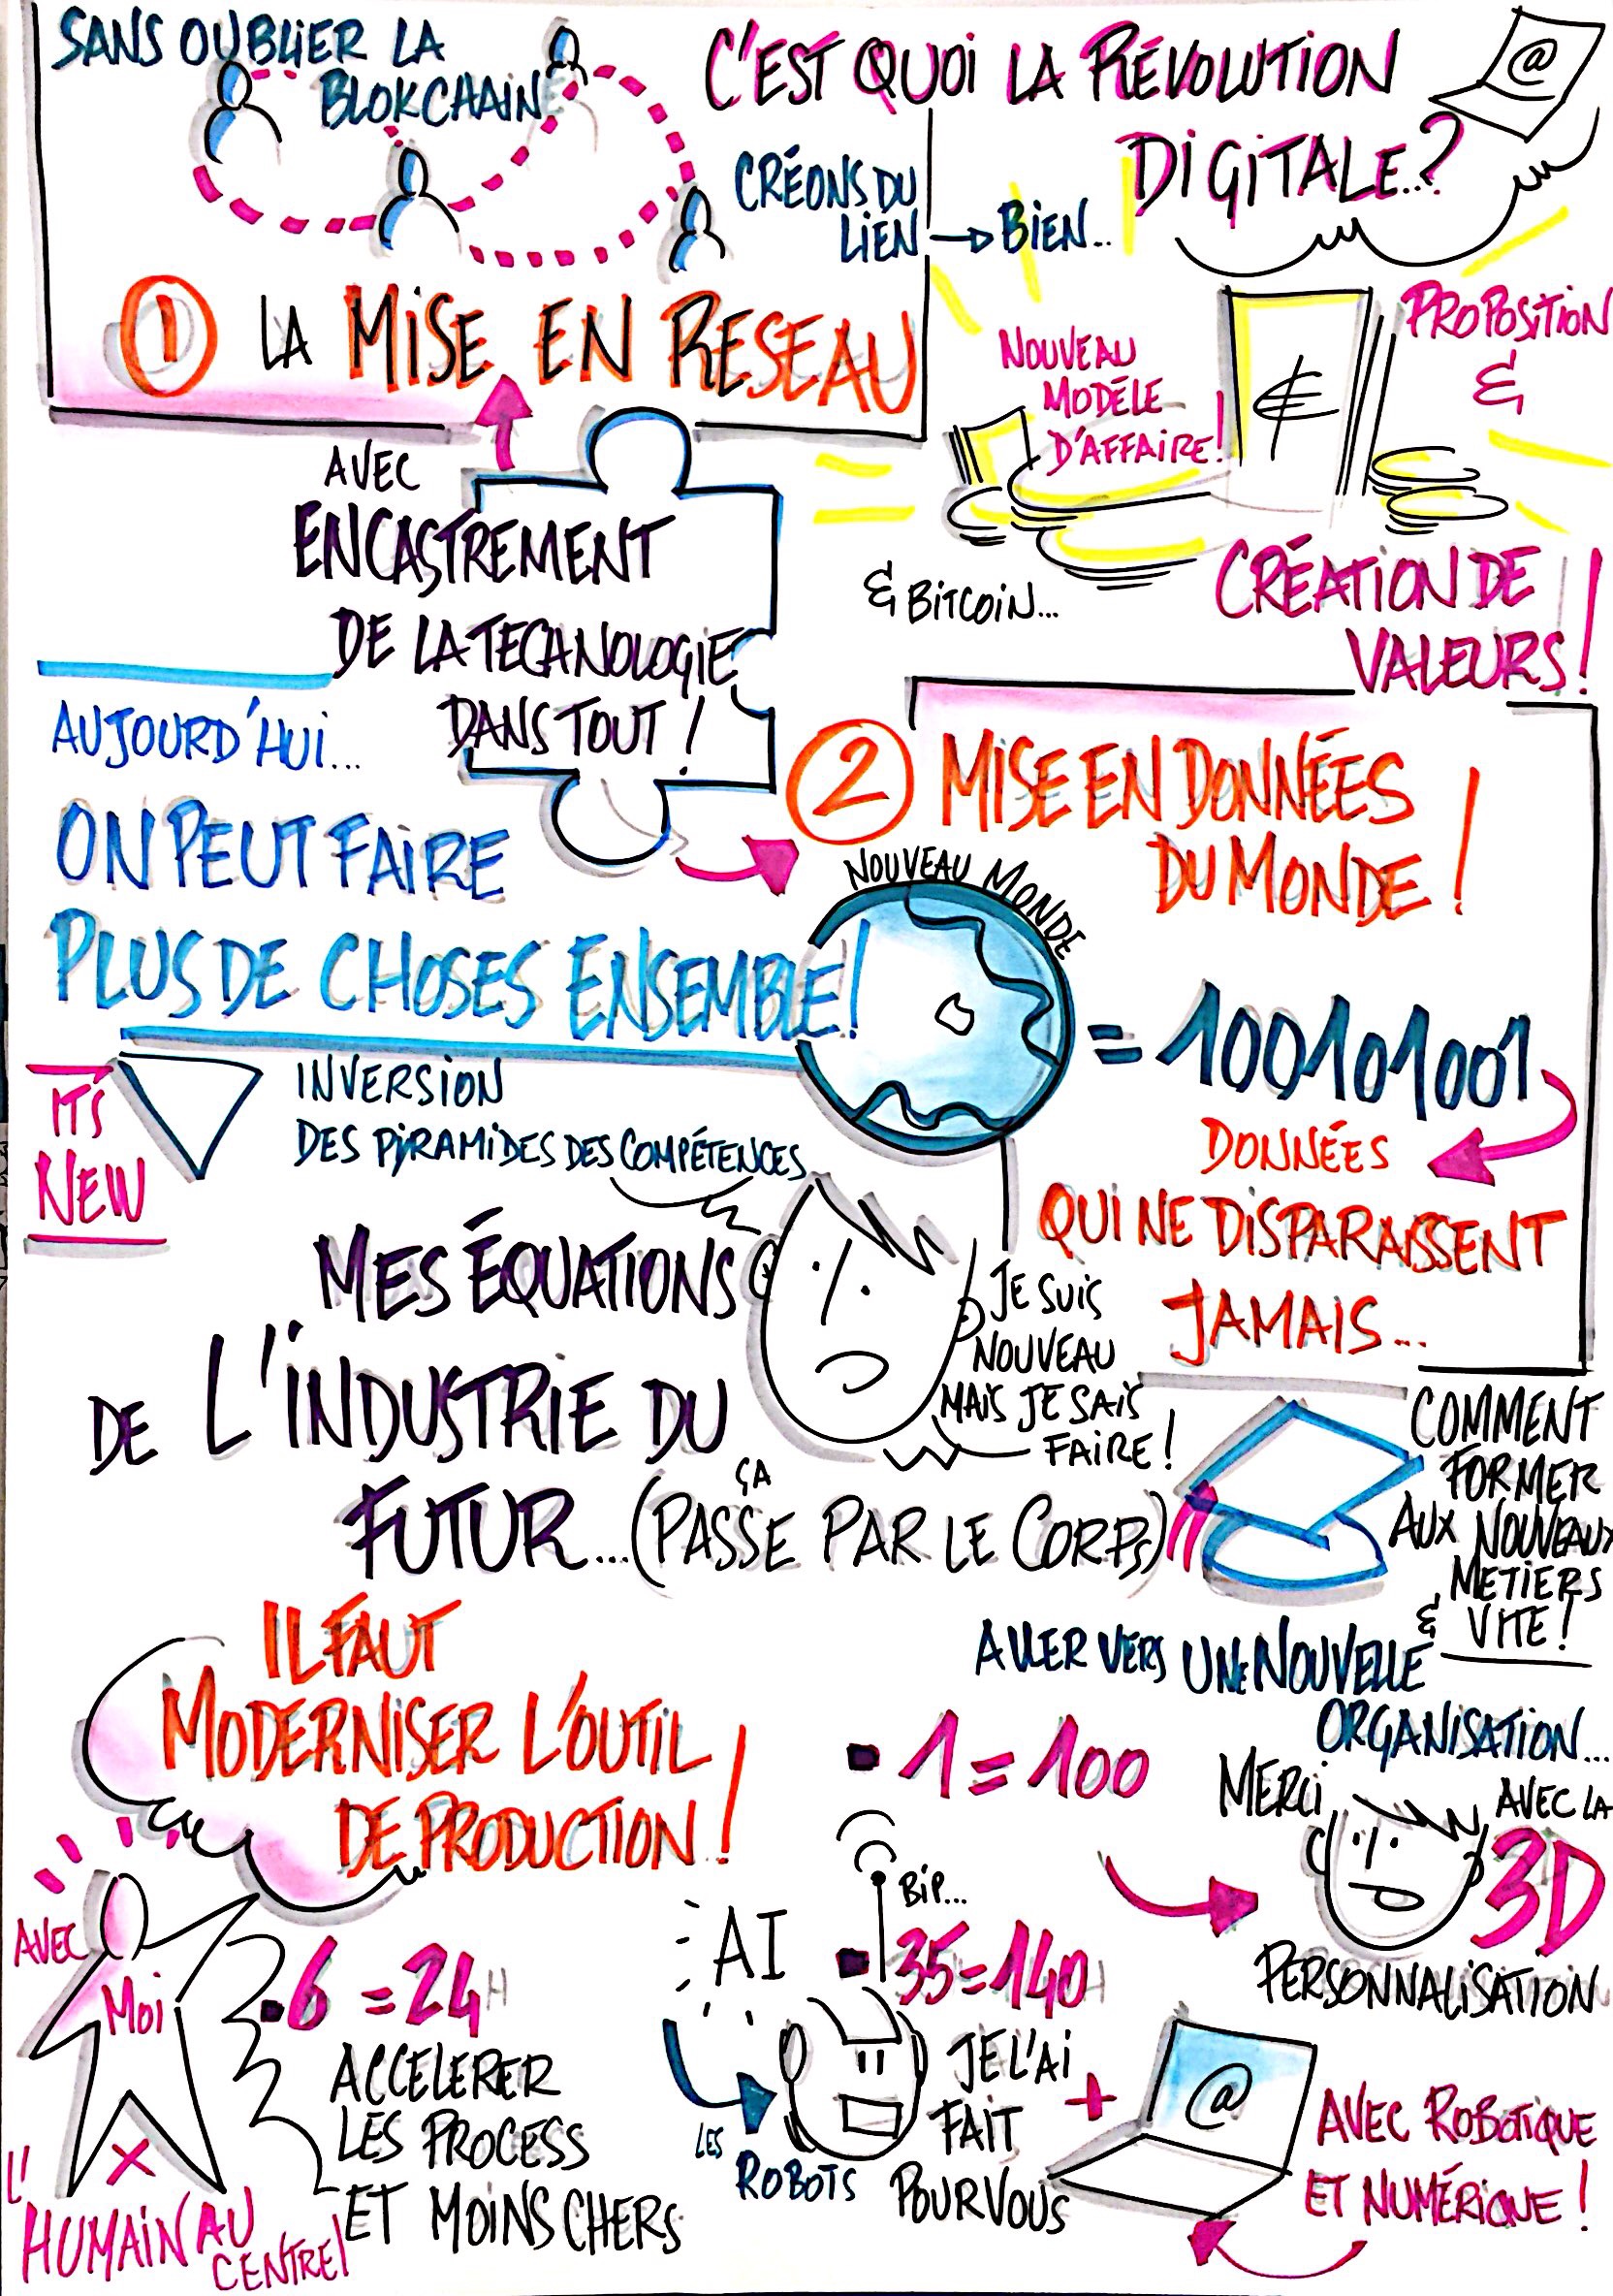 SANS OUBLIER LA
BLOKCHAIN
C'EST QUOI LA RÉVOLUTION
DIGITALE..?
@
CRÉONS DU
LIEN → BIEN...
① LA MISE EN RESEAU
NOUVEAU
MODÉLE
D'AFFAIRE!
€
PROPOSITION
&
CRÉATION DE
VALEURS!
& BITCOIN...
AVEC
ENCASTREMENT
DE LA TECHNOLOGIE
DANS TOUT!
AUJOURD'HUI...
ON PEUT FAIRE
PLUS DE CHOSES ENSEMBLE!
② MISE EN DONNÉES
DU MONDE!
NOUVEAU MONDE
= 100101001
DONNÉES
QUI NE DISPARAISSENT
JAMAIS...
IT'S
NEW
INVERSION
DES PIRAMIDES DES COMPÉTENCES
MES ÉQUATIONS
DE L'INDUSTRIE DU
FUTUR...(ÇA PASSE PAR LE CORPS)
JE SUIS
NOUVEAU
MAIS JE SAIS
FAIRE!
COMMENT
FORMER
AUX NOUVEAUX
METIERS
& VITE!
ALLER VERS UNE NOUVELLE
ORGANISATION...
IL FAUT
MODERNISER L'OUTIL
DE PRODUCTION!
1 = 100
MERCI
AVEC LA
3D
PERSONNALISATION
AVEC
MOI
L'HUMAIN AU
CENTRE!
6 = 24H
ACCELERER
LES PROCESS
ET MOINS CHERS
AI
BIP...
35 = 140H
LES
ROBOTS
JE L'AI
FAIT
POUR VOUS
+
@
AVEC ROBOTIQUE
ET NUMÉRIQUE!